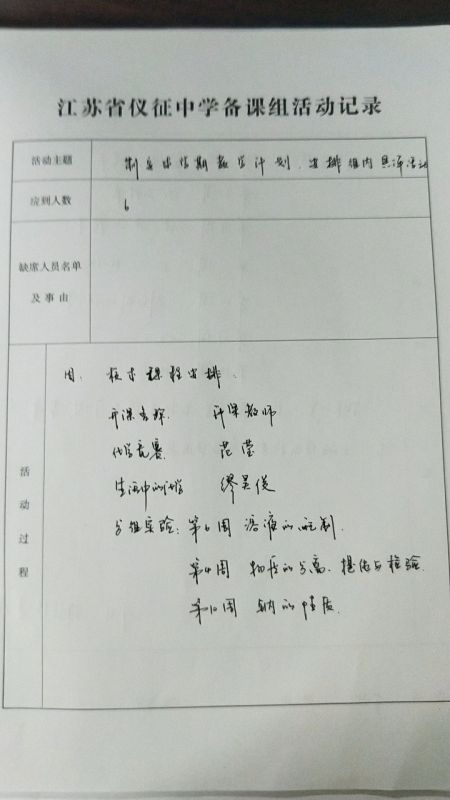 江苏省仪征中学备课组活动记录
活动主题
制定本学期教学计划、安排组内具体活动
应到人数
6
缺席人员名单
及事由
活动过程
四、校本课程安排。
开课名称 开课教师
化学竞赛 范莹
生活中的化学 缪昊俊
分组实验：第6周 溶液的配制.
第9周 物质的分离、提纯与检验.
第10周 钠的性质.